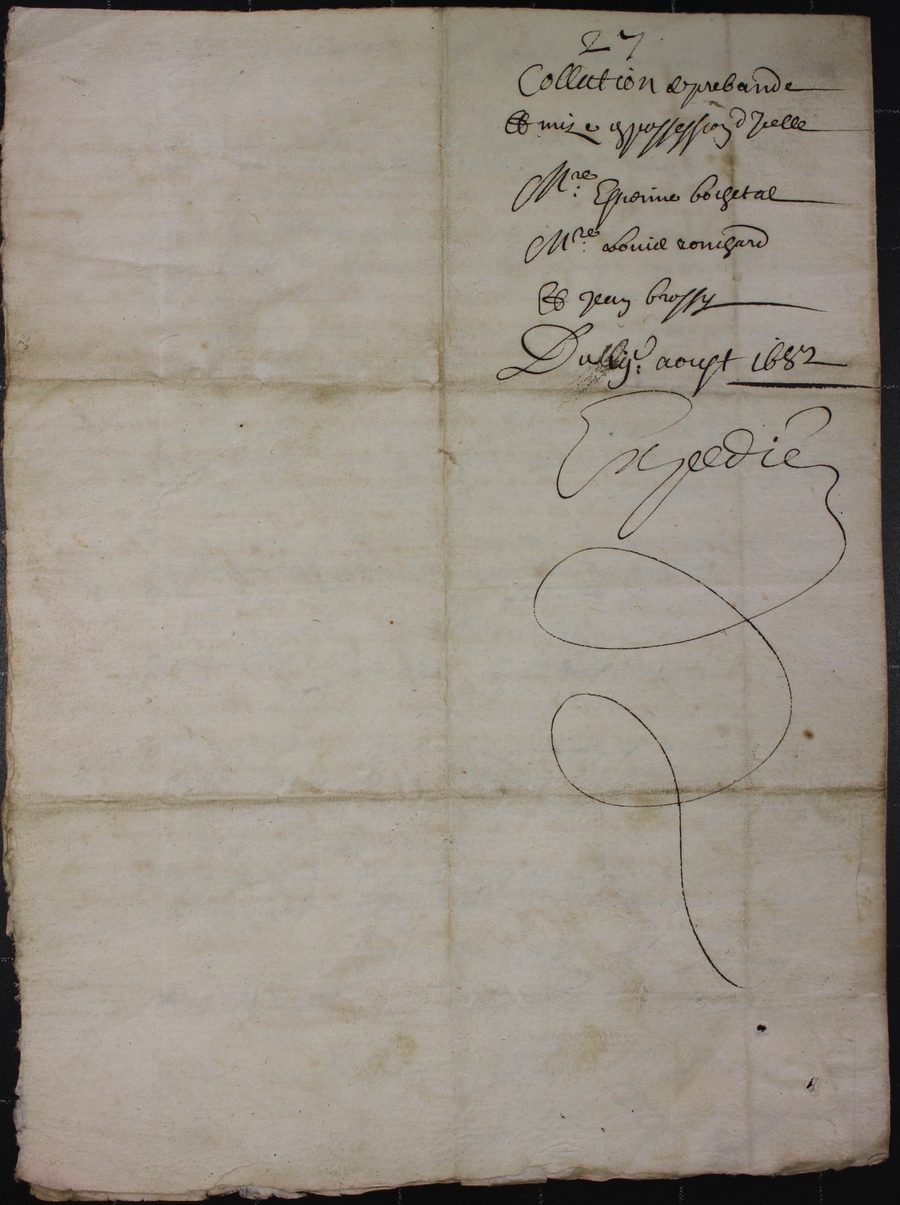 27
Collation de prebande
& mise en possession d'icelle
Mre Estienne bochetal
Mre Louis ronchard
& Jean brossy
Du aoust 1682
Expedié